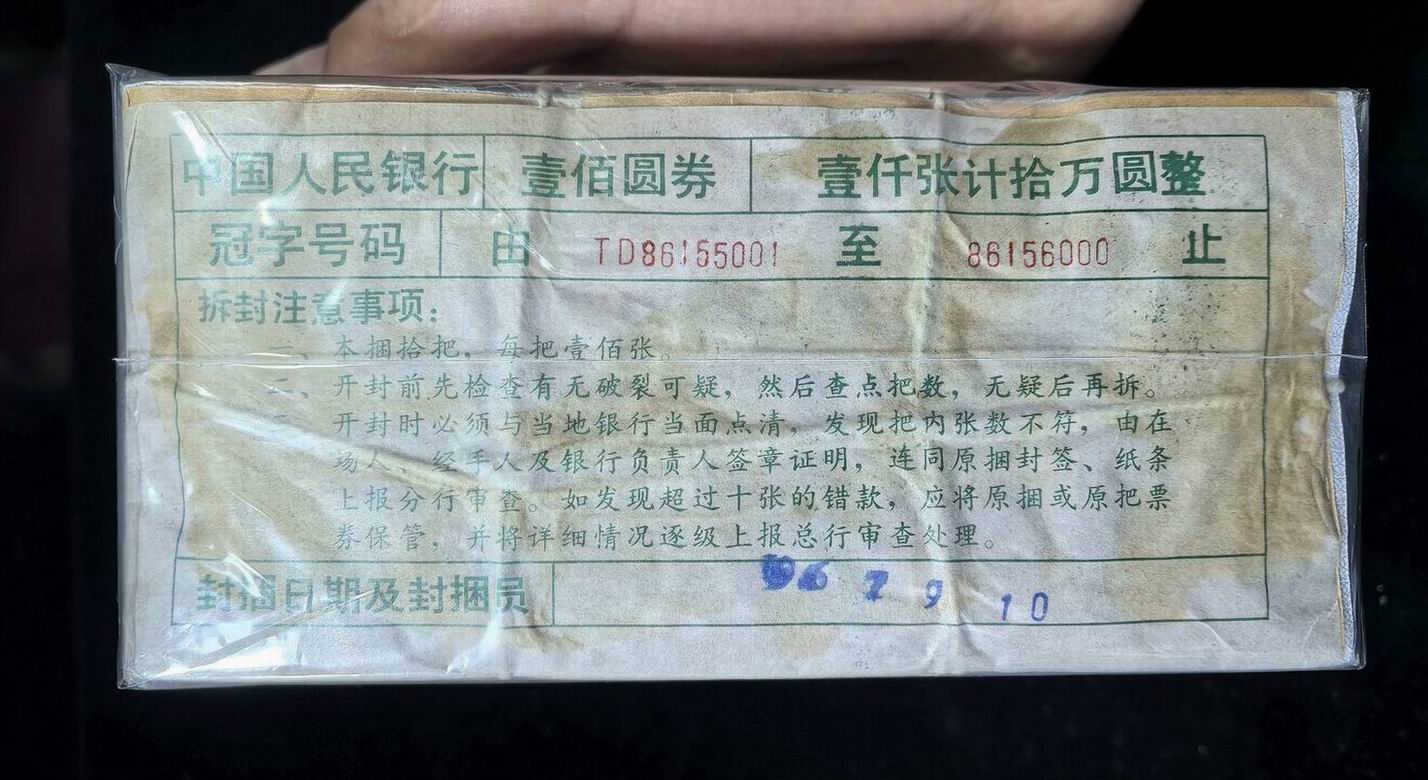 中国人民银行 壹佰圆券 壹仟张计拾万圆整
冠字号码 由 TD86155001 至 86156000 止
拆封注意事项:
一、本捆拾把,每把壹佰张。
二、开封前先检查有无破裂可疑,然后查点把数,无疑后再拆。
三、开封时必须与当地银行当面点清,发现把内张数不符,由在
场人、经手人及银行负责人签章证明,连同原捆封签、纸条
上报分行审查。如发现超过十张的错款,应将原捆或原把票
券保管,并将详细情况逐级上报总行审查处理。
封捆日期及封捆员 96 7 9 10